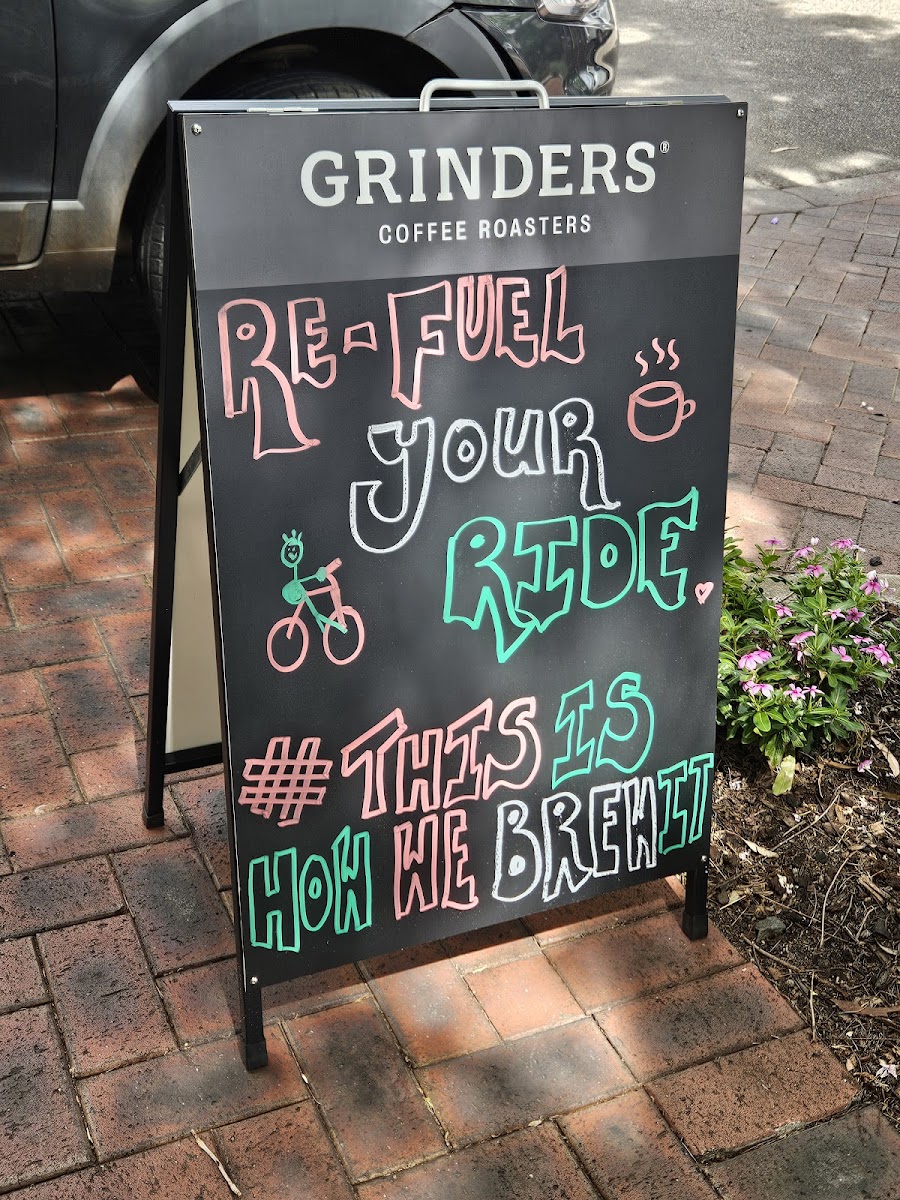 GRINDERS®
COFFEE ROASTERS
RE-FUEL
YOUR
RIDE.
#THIS IS
HOW WE BREWIT